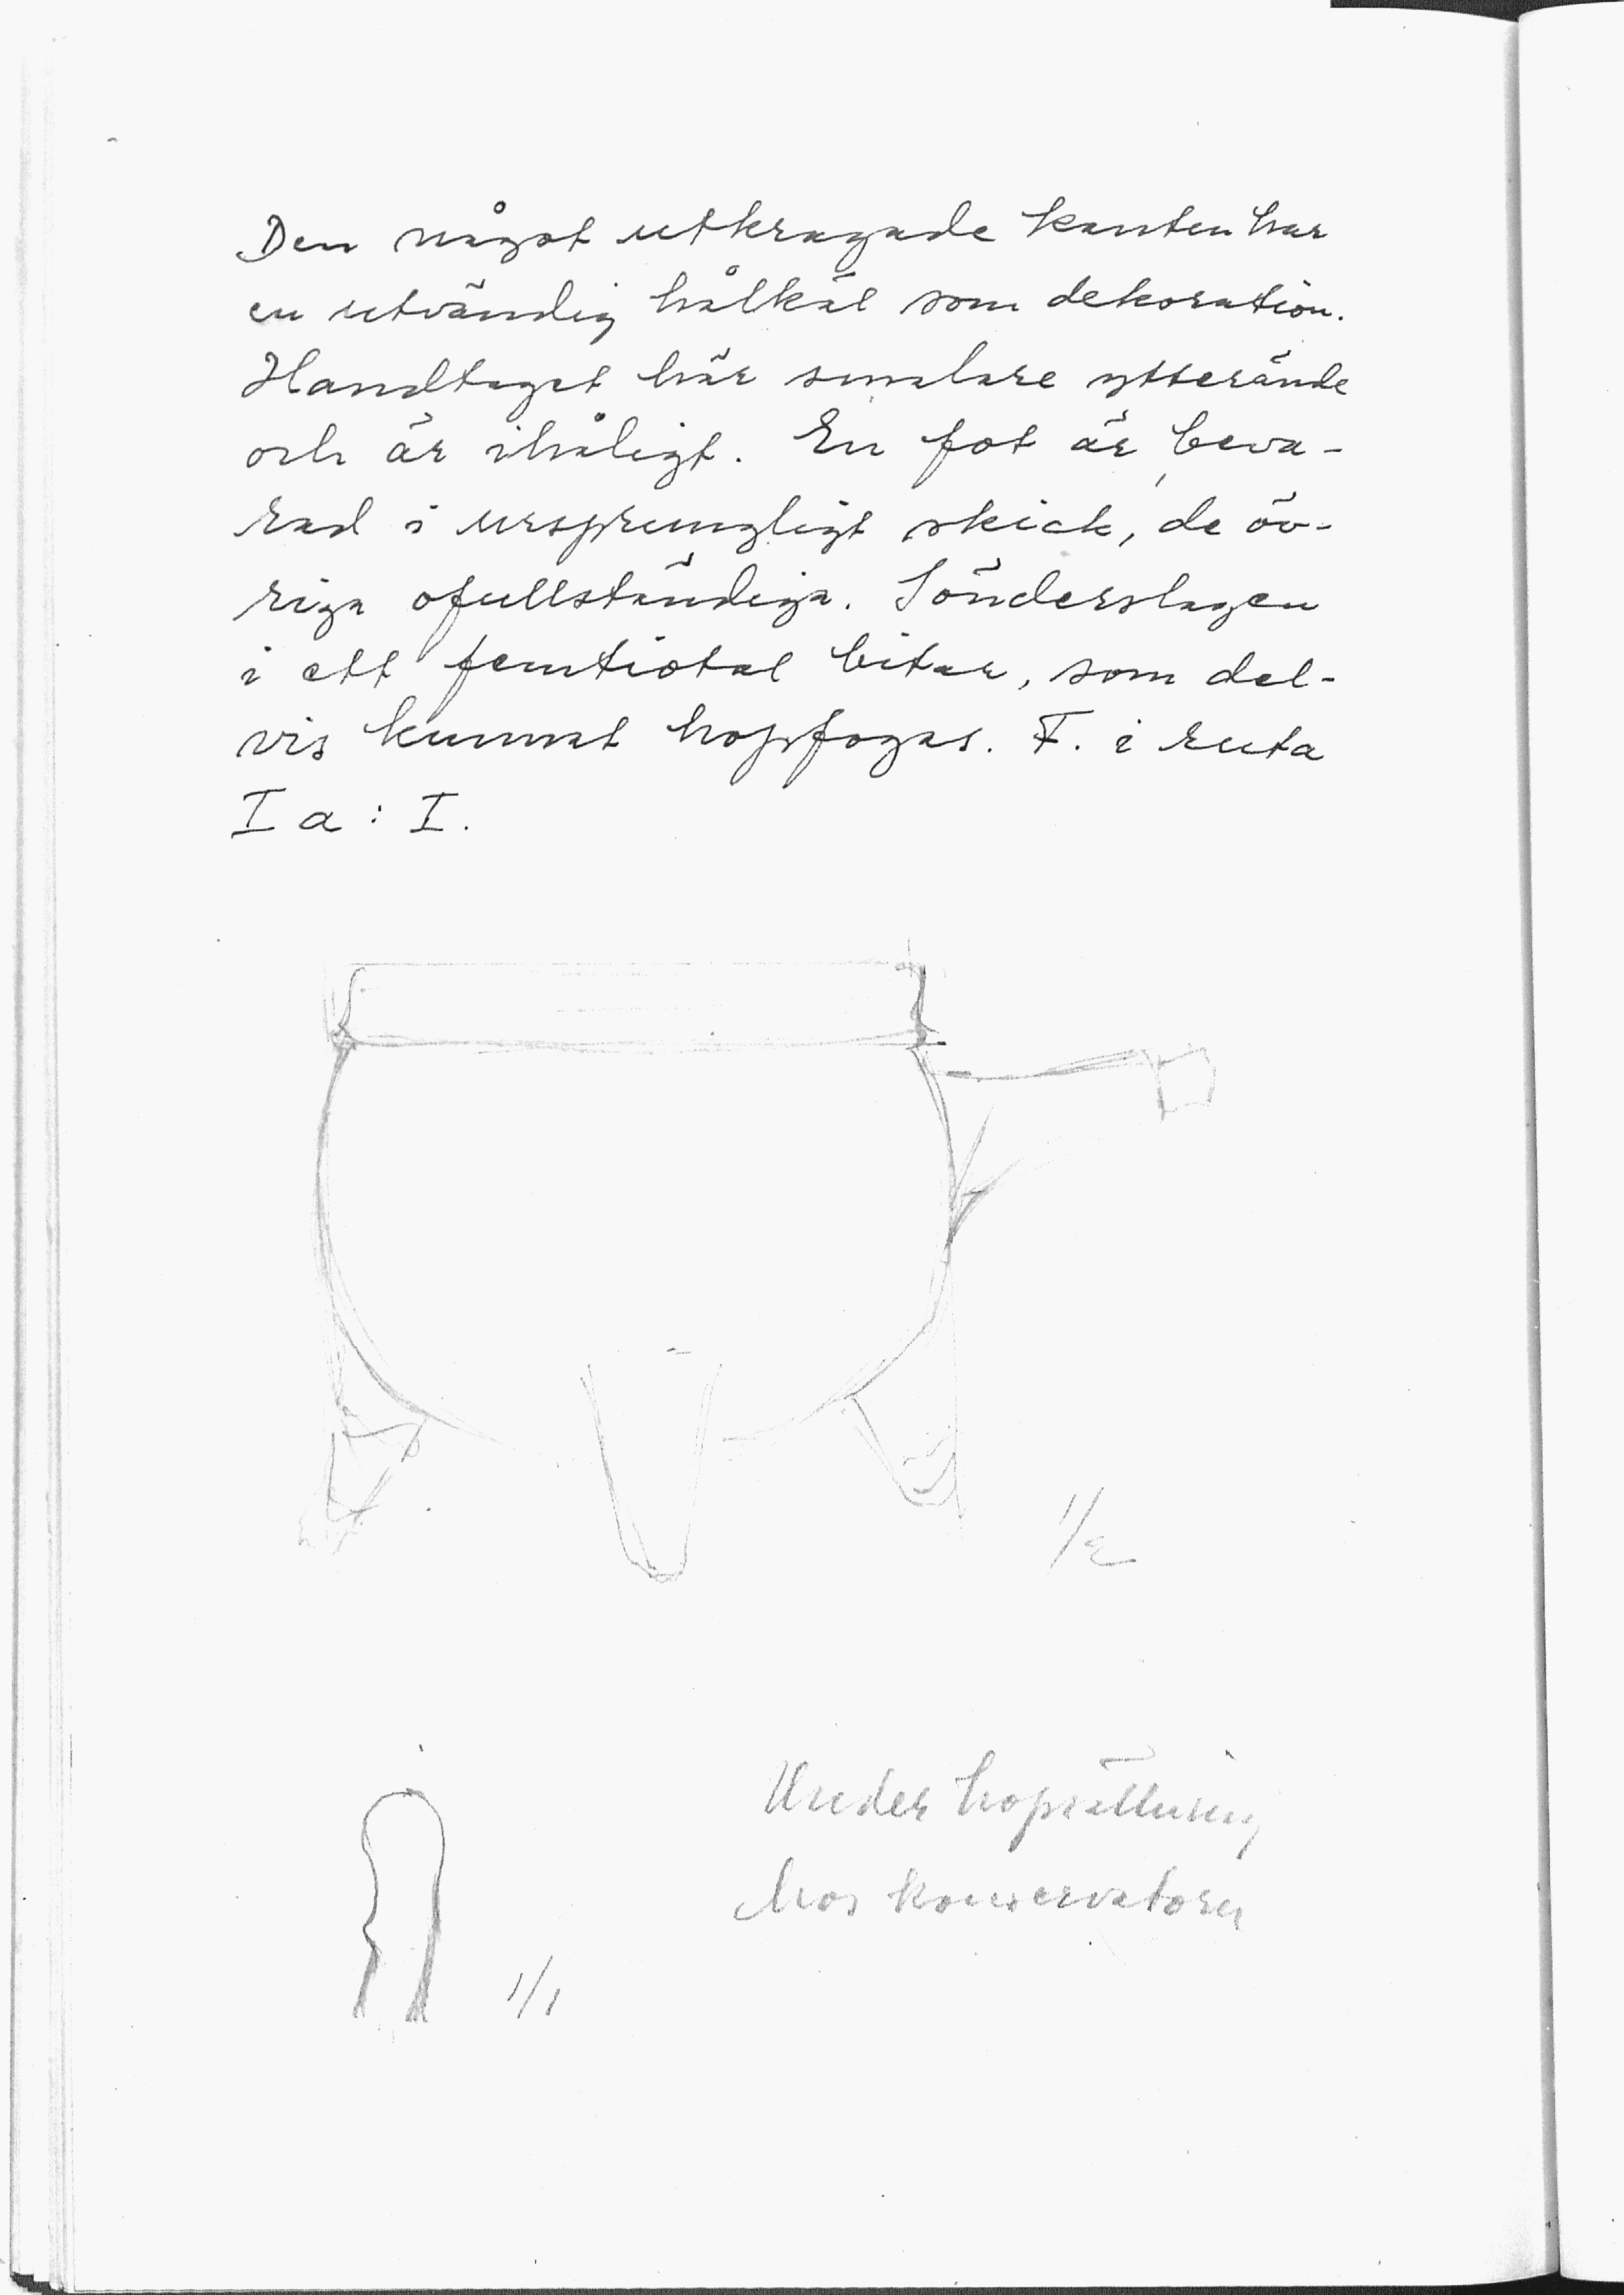 Den något utkragade kanten har
en utvändig hålkäl som dekoration.
Handtaget här smalare ytterände
och är ihåligt. En fot är beva-
rad i ursprungligt skick, de öv-
riga ofullständiga. Sönderslagen
i ett femtiotal bitar, som del-
vis kunnat hopfogas. F. i ruta
I a : I.
1/2
Under hopsättning
hos konservatorn
1/1